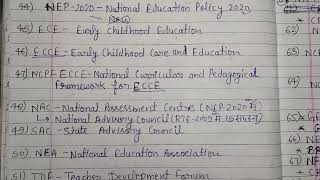 44) NEP-2020 - National Education Policy 2020
45) ECE - Early Childhood Education
46) ECCE - Early Childhood Care and Education
47) NCPFECCE - National Curricular and Pedagogical
Framework for ECCE
48) NAC - National Assessment Centre (NEP-2020 में)
National Advisory Council (RTE-2009 में)
49) SAC - State Advisory Council
50) NEA - National Education Association
51) TDF - Teacher Development Forum
62)
63)
64)
65)
66)
67)